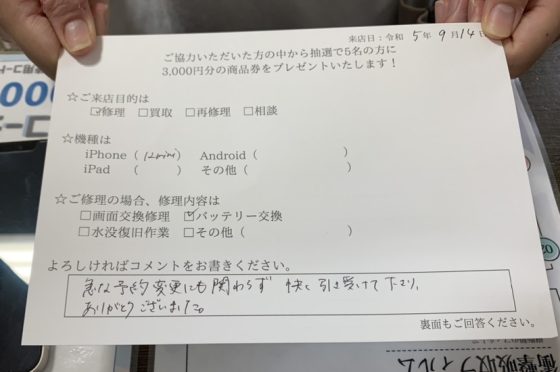 来店日：令和 5年 9月14日
ご協力いただいた方の中から抽選で5名の方に
3,000円分の商品券をプレゼントいたします！
☆ご来店目的は
☑修理 □買取 □再修理 □相談
☆機種は
iPhone（12mini） Android（ ）
iPad （ ） その他（ ）
☆ご修理の場合、修理内容は
□画面交換修理 ☑バッテリー交換
□水没復旧作業 □その他（ ）
よろしければコメントをお書きください。
急な予約変更にも関わらず 快く引き受けて下さり、
ありがとうございました。
裏面もご回答ください。
衝撃吸収フィルム